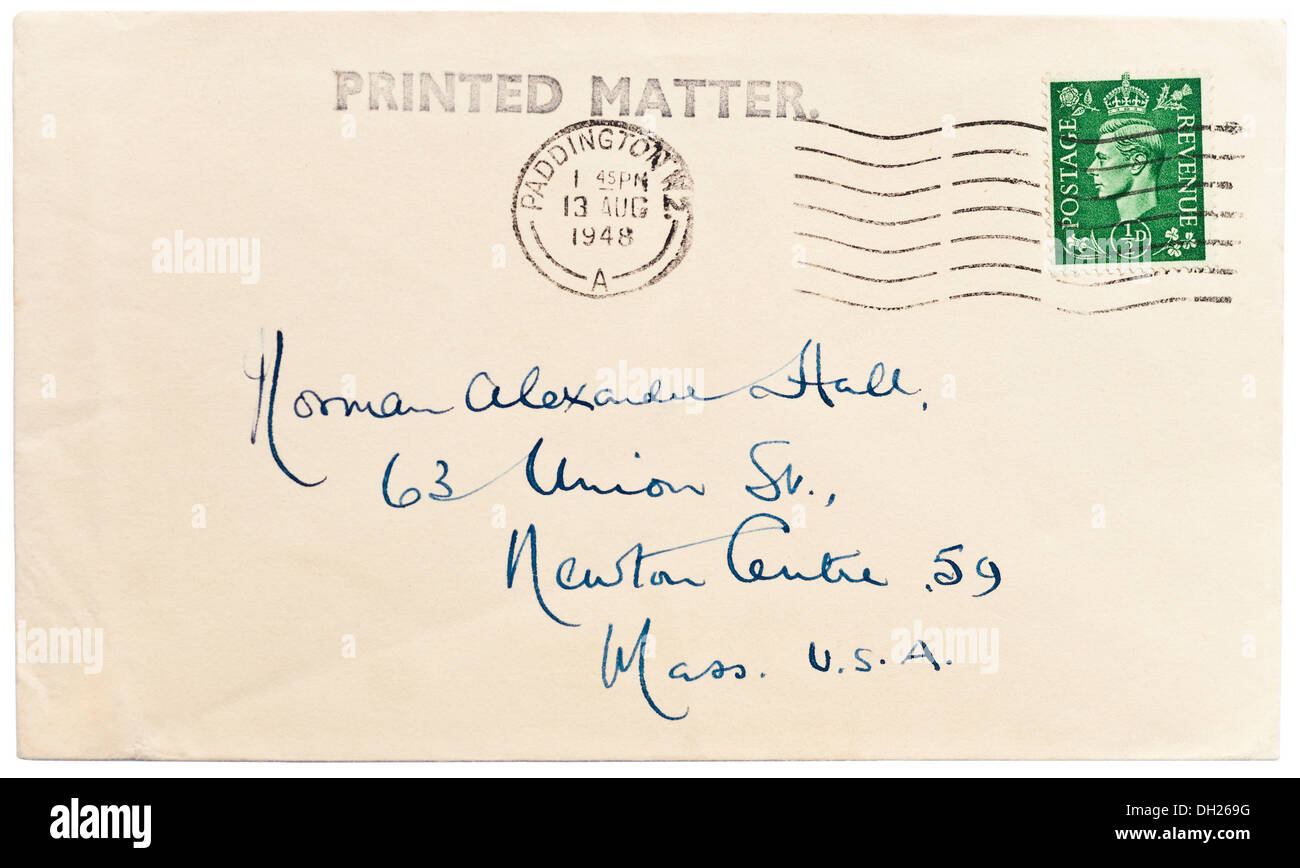 PRINTED MATTER.
PADDINGTON W2.
1 45PM
13 AUG
1948
A
POSTAGE
REVENUE
½D
Norman Alexander Hall,
63 Union St.,
Newton Centre 59
Mass. U.S.A.
alamy
alamy
Image ID: DH269G
www.alamy.com